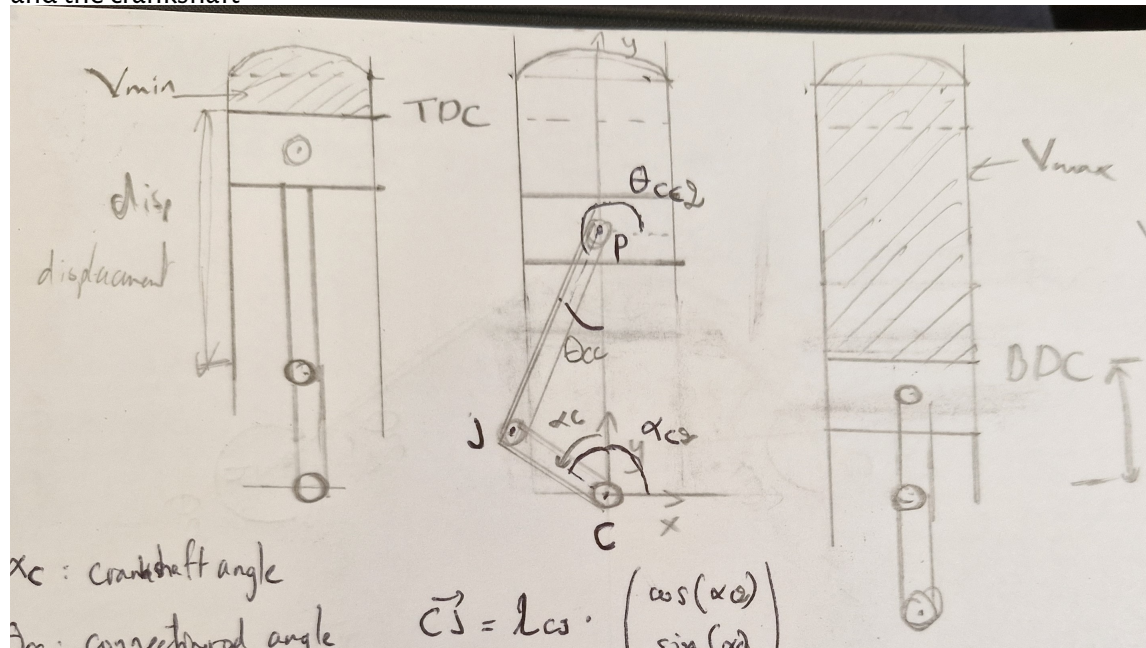 and the crankshaft
Vmin
TDC
disp
displacment
y
θcc2
P
θcc
J
αc
αc2
y
x
C
Vmax
BDC
αc : crankshaft angle
angle
CJ = lcJ . ( cos(αc2)
sin(αc) )